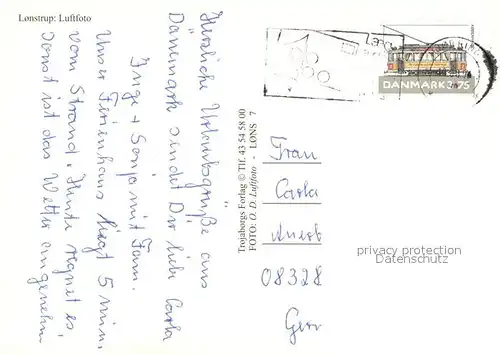 Lønstrup: Luftfoto
Herzliche Urlaubsgrüße aus
Dänemark sendet Dir liebe Carla
Inge + Sonja mit Fam.
Unser Ferienhaus liegt 5 min.
vom Strand. Heute regnet es,
sonst ist das Wetter angenehm
Trojaborgs Forlag © Tlf. 43 54 58 00
FOTO: O. D. Luftfoto - LØNS 7
DANMARK 3.75
Frau
Carla
08328
Ger
privacy protection
Datenschutz